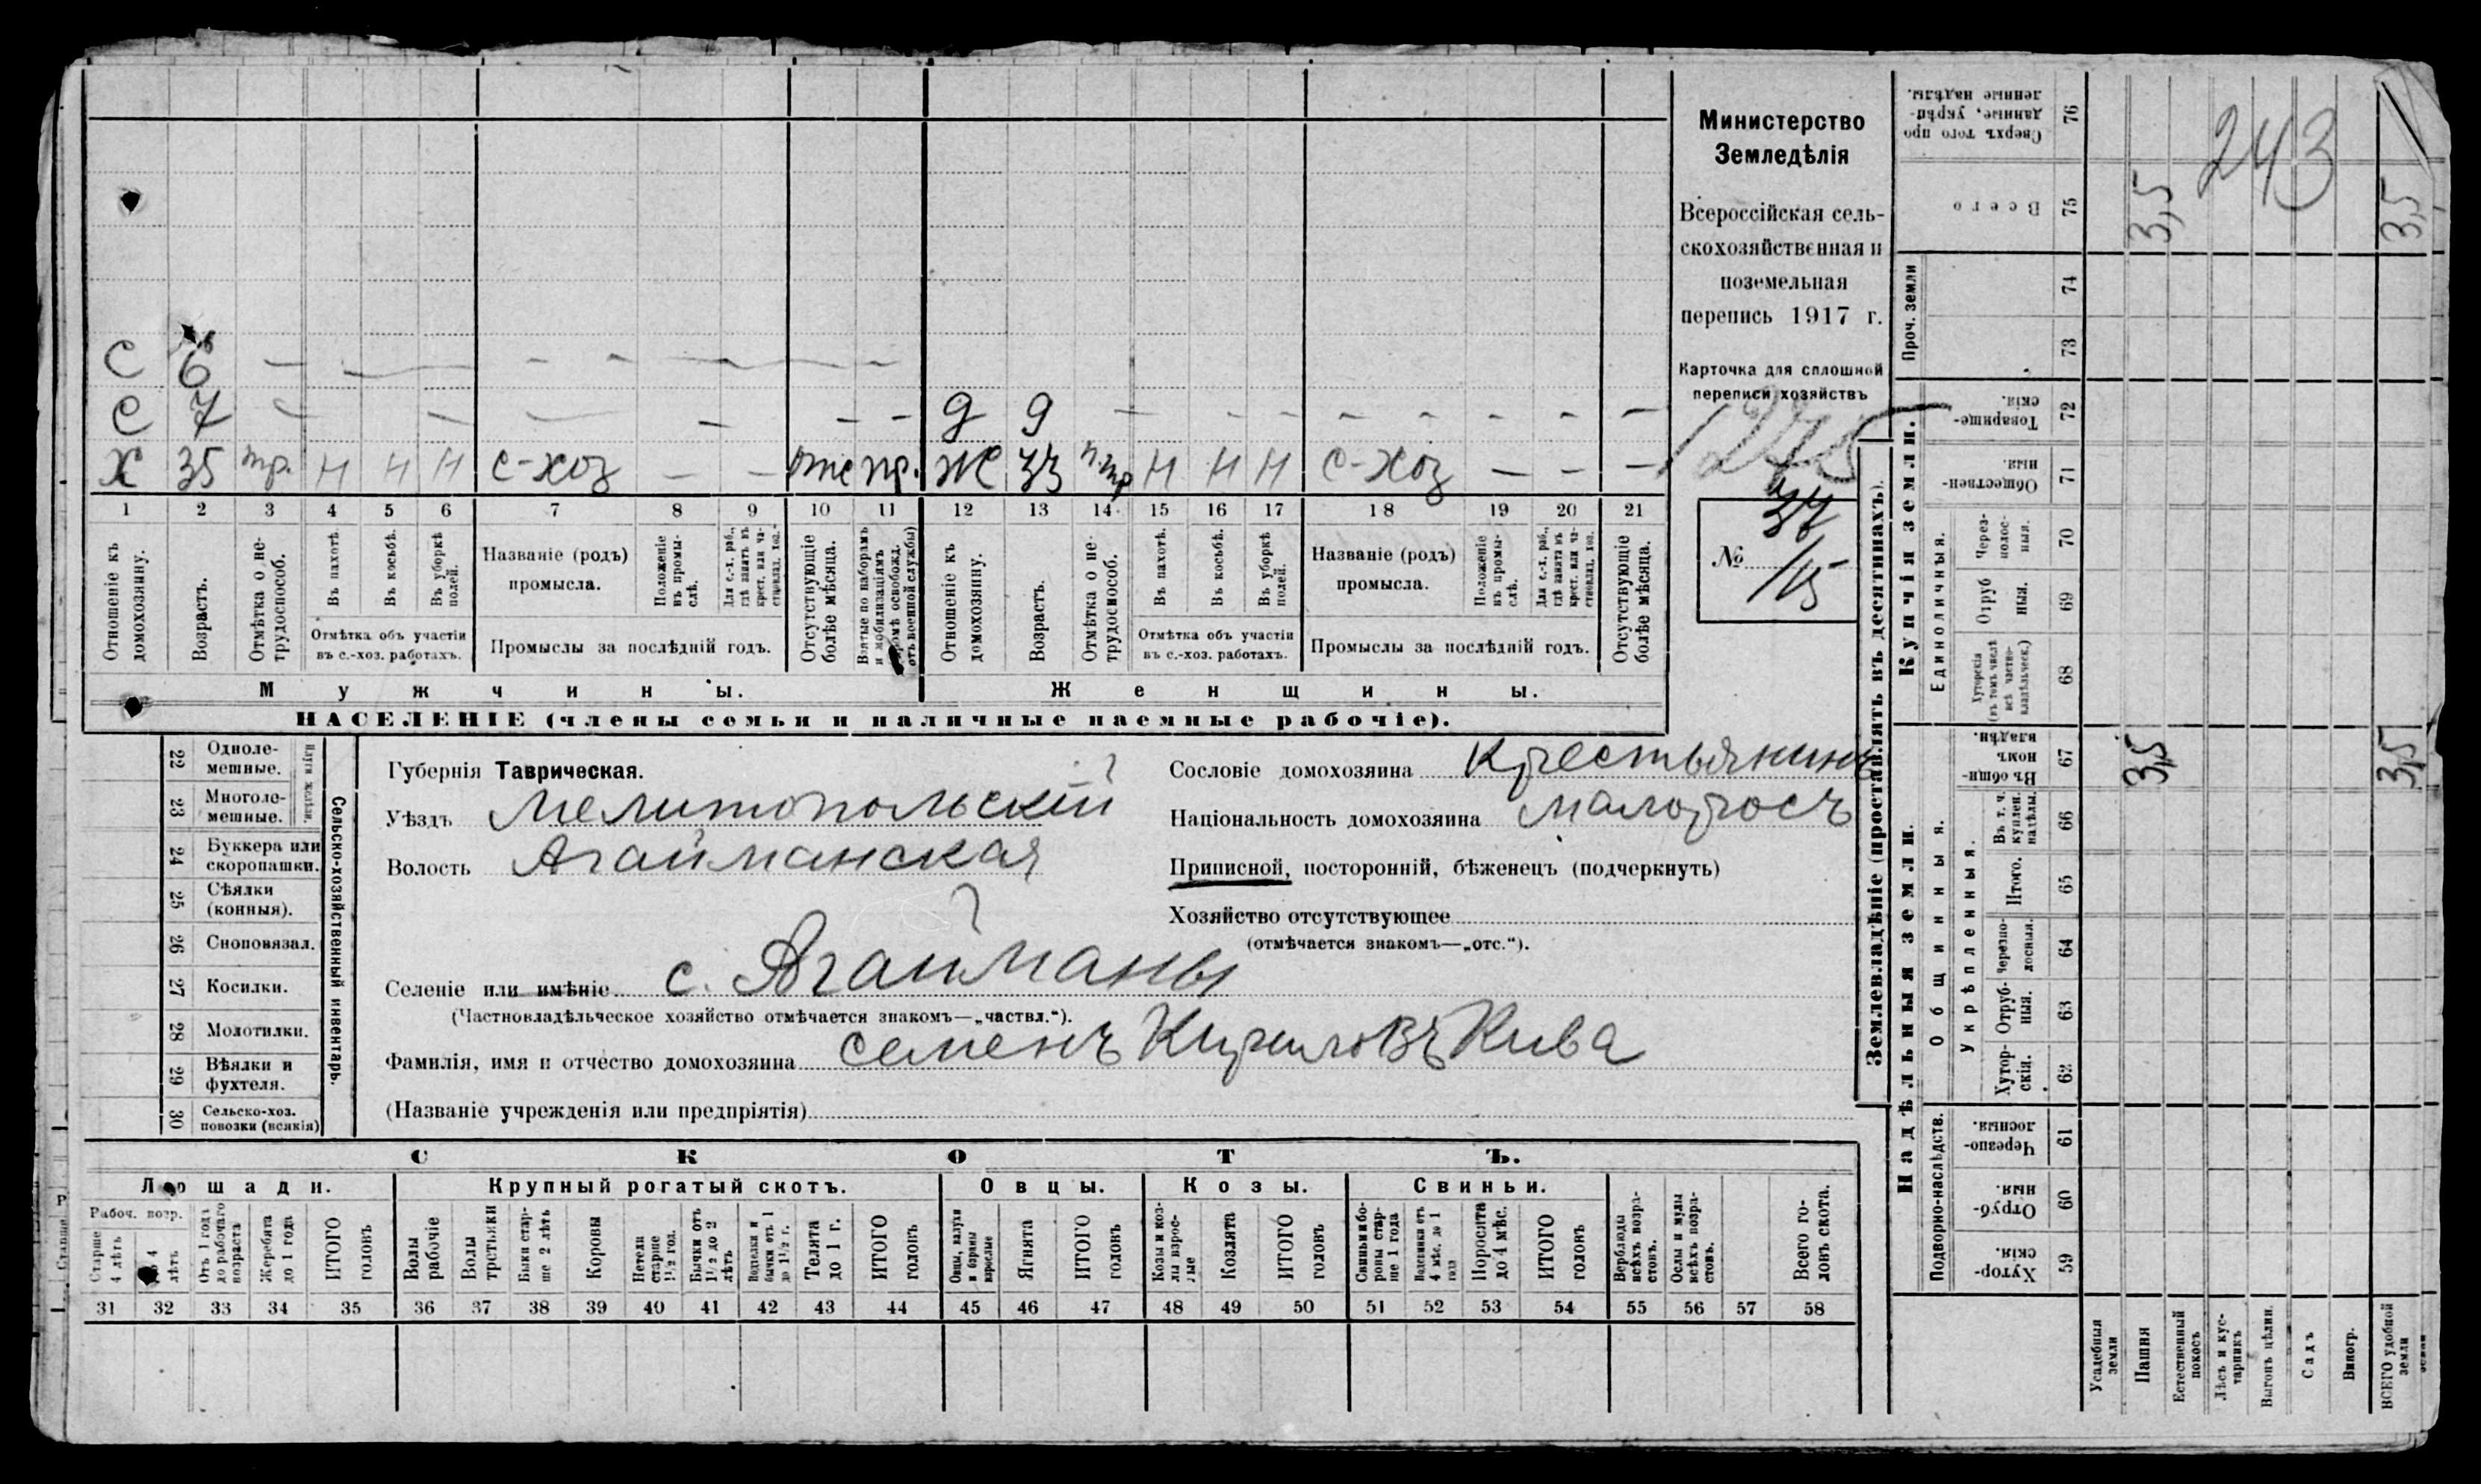 С 6 — — — — — — —
С 7 — — — — — — д 9 — — — — — — — —
Х 35 тр. н н н с-хоз — — отс пр. Ж 33 н н н с-хоз — — —
1 2 3 4 5 6 7 8 9 10 11 12 13 14 15 16 17 18 19 20 21
Отношеніе къ домохозяину.
Возрастъ.
Отмѣтка о не-трудоспособ.
Въ пахотѣ.
Въ косьбѣ.
Въ уборкѣ полей.
Отмѣтка объ участіи въ с.-хоз. работахъ.
Названіе (родъ) промысла.
Положеніе въ промы-слѣ.
Для с.-х. раб., гдѣ занятъ въ крест. или ча-стновлад. хоз.
Промыслы за послѣдній годъ.
Отсутствующіе болѣе мѣсяца.
Взятые по наборамъ и мобилизаціямъ (кромѣ освобожд. отъ военной службы)
Отношеніе къ домохозяину.
Возрастъ.
Отмѣтка о не-трудоспособ.
Въ пахотѣ.
Въ косьбѣ.
Въ уборкѣ полей.
Отмѣтка объ участіи въ с.-хоз. работахъ.
Названіе (родъ) промысла.
Положеніе въ промы-слѣ.
Для с.-х. раб., гдѣ занятъ въ крест. или ча-стновлад. хоз.
Промыслы за послѣдній годъ.
Отсутствующіе болѣе мѣсяца.
Мужчины.
Женщины.
НАСЕЛЕНІЕ (члены семьи и наличные наемные рабочіе).
Министерство
Земледѣлія
Всероссійская сель-
скохозяйственная и
поземельная
перепись 1917 г.
Карточка для сплошной
переписи хозяйствъ
1275
№ 37
15
Сельско-хозяйственный инвентарь.
Плуги желѣз.
22 Одноле-мешные.
23 Многоле-мешные.
24 Буккера или скоропашки.
25 Сѣялки (конныя).
26 Сноповязал.
27 Косилки.
28 Молотилки.
29 Вѣялки и фухтеля.
30 Сельско-хоз. повозки (всякія)
Губернія Таврическая.
Уѣздъ Мелитопольскій
Волость Агайманская
Селеніе или имѣніе с. Агайманы
(Частновладѣльческое хозяйство отмѣчается знакомъ—„частвл.“).
Фамилія, имя и отчество домохозяина Семенъ Кириловъ Кива
(Названіе учрежденія или предпріятія)
Сословіе домохозяина Крестьянинъ
Національность домохозяина малоросъ
Приписной, посторонній, бѣженецъ (подчеркнуть)
Хозяйство отсутствующее
(отмѣчается знакомъ—„отс.“).
СКОТЪ.
Лошади.
Крупный рогатый скотъ.
Овцы.
Козы.
Свиньи.
Рабоч. возр.
Старше 4 лѣтъ
До 4 лѣтъ
Отъ 1 года до рабочаго возраста
Жеребята до 1 года
ИТОГО головъ
Волы рабочіе
Волы третьяки
Быки стар-ше 2 лѣтъ
Коровы
Нетели старше 1½ год.
Бычки отъ 1½ до 2 лѣтъ
Телята до 1 г.
ИТОГО головъ
Ягнята
ИТОГО головъ
Козы и коз-лы взрос-лые
Козлята
ИТОГО головъ
Свиньи и бо-ровы стар-ше 1 года
Поросята до 4 мѣс.
ИТОГО головъ
Верблюды всѣхъ возра-стовъ.
Ослы и мулы всѣхъ возра-стовъ.
Всего го-ловъ скота.
31 32 33 34 35 36 37 38 39 40 41 42 43 44 45 46 47 48 49 50 51 52 53 54 55 56 57 58
Землевладѣніе (проставлять въ десятинахъ).
Надѣльныя земли.
Купчія земли.
Проч. земли
Подворно-наслѣдств.
Общинныя.
Укрѣпленныя.
Единоличныя.
76 Сверхъ того про данные, укрѣп-ленные надѣлы.
75 Всего
74
73
72 Товарище-скія.
71 Обществен-ныя.
70 Через-полос-ныя.
69 Отруб ныя.
68 Хуторскія (въ томъ числѣ всѣ частно-владѣльческ.)
67 Въ общин-номъ владѣн.
66 Въ т. ч. куплен. надѣлы.
65 Итого.
64 Черезпо-лосныя.
63 Отруб-ныя.
62 Хутор-скія.
61 Черезпо-лосныя.
60 Отруб-ныя.
59 Хутор-скія.
Усадебныя земли
Пашня
Естественный покосъ
Лѣсъ и кус-тарникъ
Выгонъ цѣлин.
Садъ
Виногр.
ВСЕГО удобной земли
243
3,5
3,5
3,5
3,5